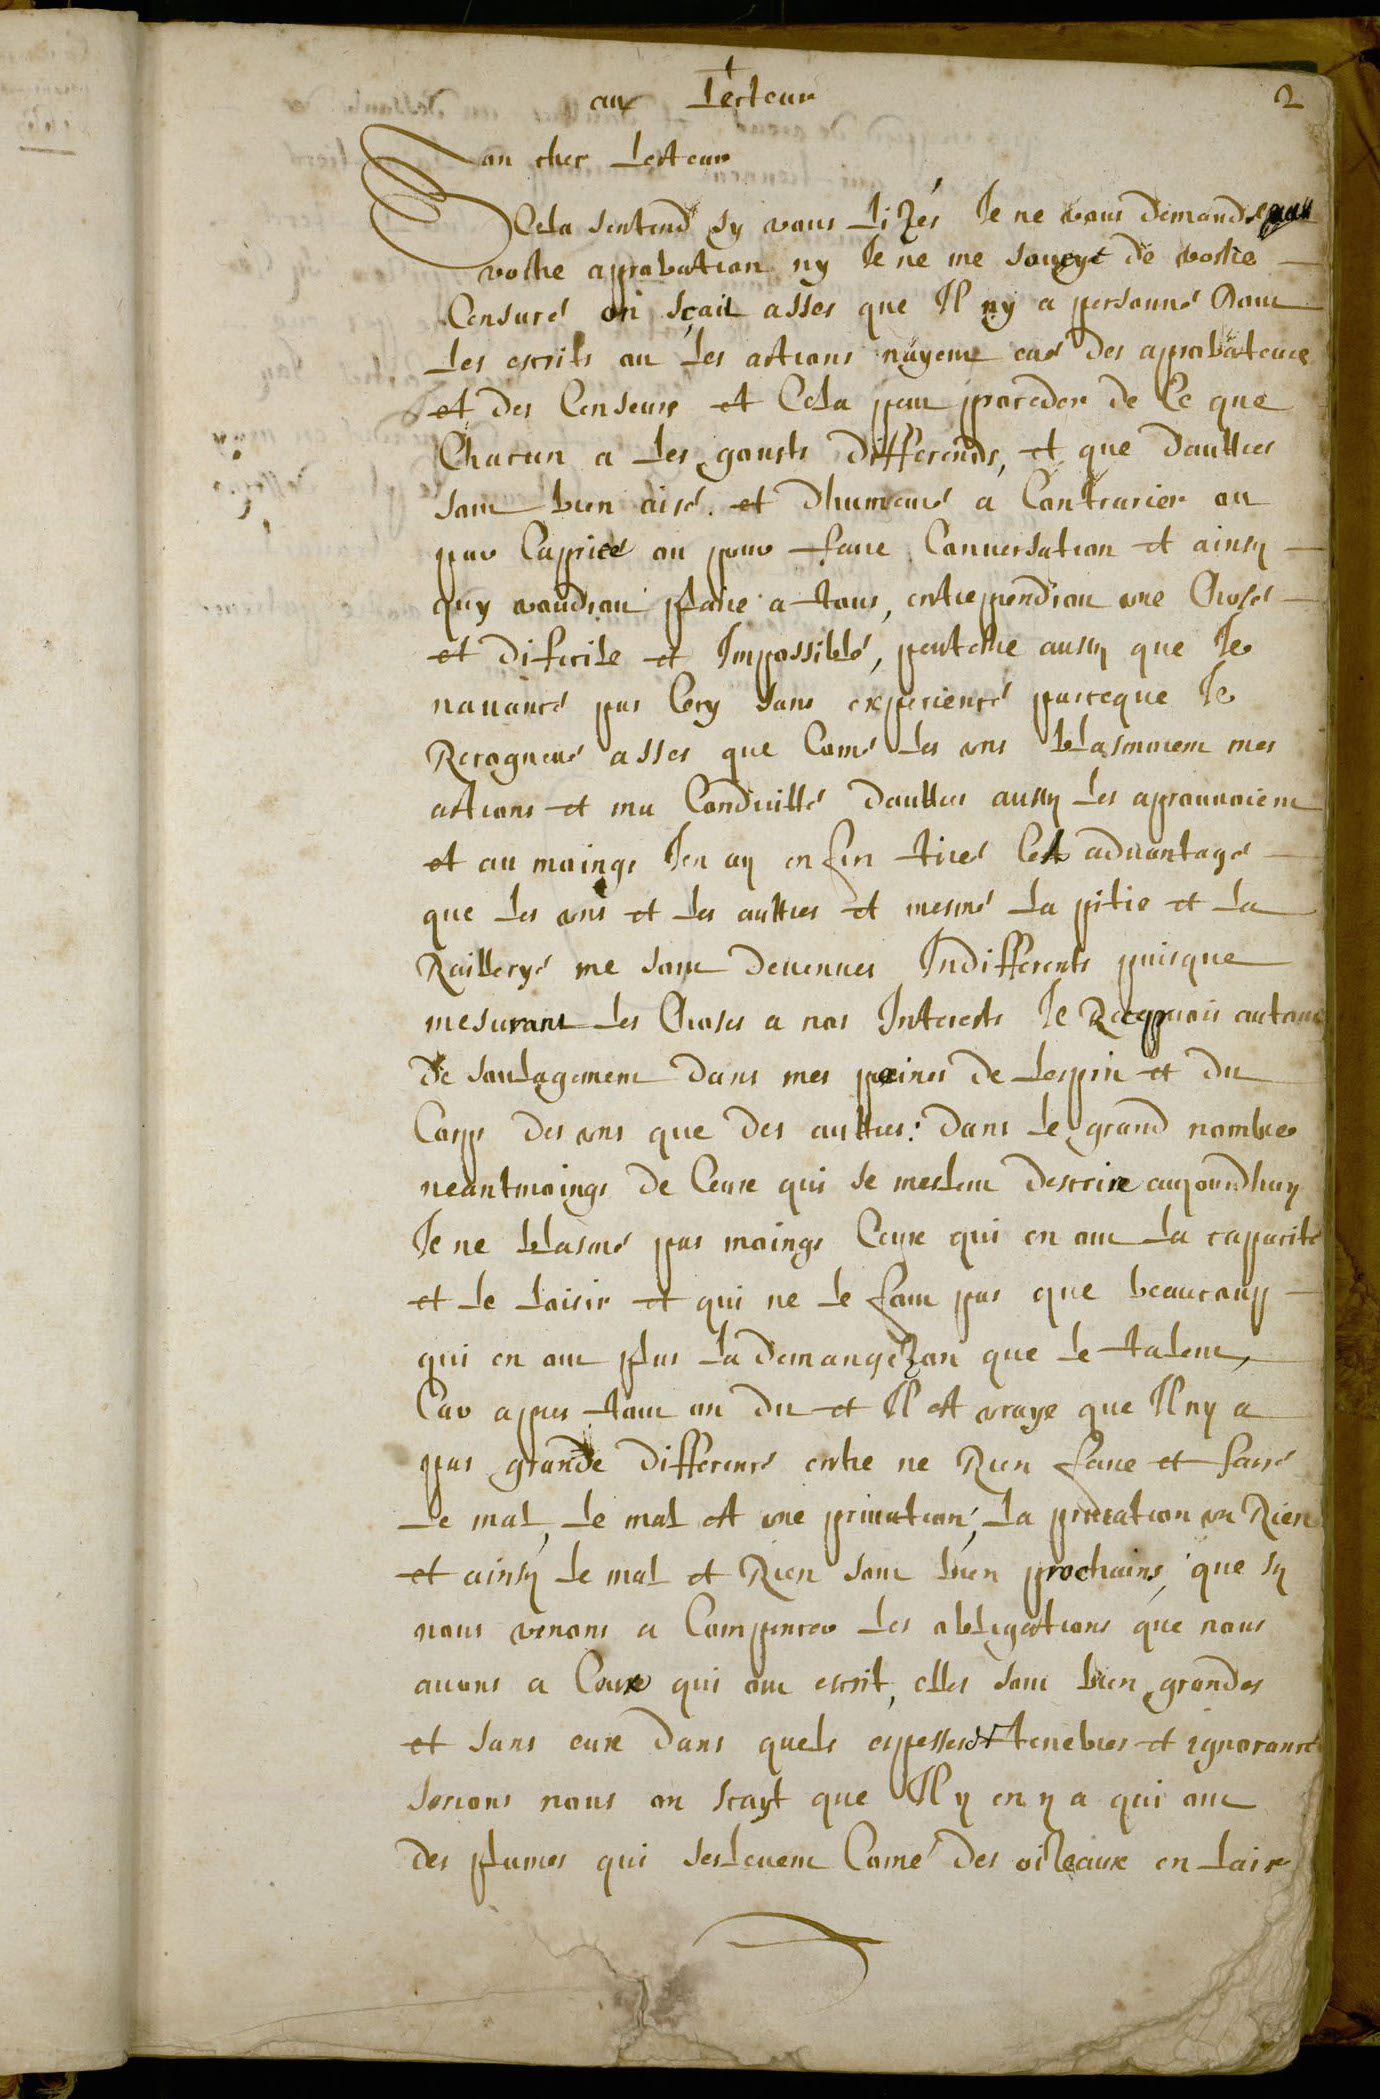 au Lecteur
2
Mon cher Lecteur
Cela sentend sy vous Lizés Je ne vous demande
vostre aprobation ny Je ne me soucye de vostre
Censure on sçait asses que Il ny a personne dont
Les escrits ou Les actions nayent eus des aprobateurs
et des Censeurs et Cela peut proceder de Ce que
Chacun a Les gousts differends, et que daultres
sont bien aise et dhumeur a Contrarier ou
par Caprice ou pour faire Conversation et ainsy
quy voudroit plaire a tous, entreprendroit une Chose
et dificile et Impossible, peutestre aussy que Je
navance pas Cecy sans experience parceque Je
Recognois asses que Come Les uns blasmoient mes
actions et ma Conduitte daultres aussy Les aprouuoient
et au moings Jen ay enfin tiré Cest aduantage
que Les uns et Les aultres et mesme La pitie et La
Raillerye me sont devenues Indifferents puisque
mesurant Les Choses a nos Interests Je Recepuois autant
de soulagement dans mes peines de Lesprit et du
Corps des uns que des aultres: dans Le grand nombre
neantmoings de Ceux qui se meslent descrire aujourdhuy
Je ne blasme pas moings Ceux qui en ont La capacité
et Le Loisir et qui ne Le font pas que beaucoup
qui en ont plus La demangezon que Le talent,
Car apres tout on dit et Il est vraye que Il ny a
pas grande difference entre ne Rien faire et faire
Le mal, Le mal est une priuation, La priuation un Rien
et ainsy Le mal et Rien sont bien prochains, que sy
nous venons a Comparer Les obligations que nous
auons a Ceux qui ont escrit, elles sont bien grandes
et sans eux dans quels espesses tenebres et ignorance
serions nous on scayt que Il y en y a qui ont
des plumes qui seslevent Come des oizeaux en Lair